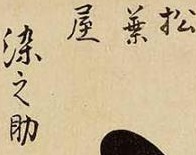 松葉屋
染之助